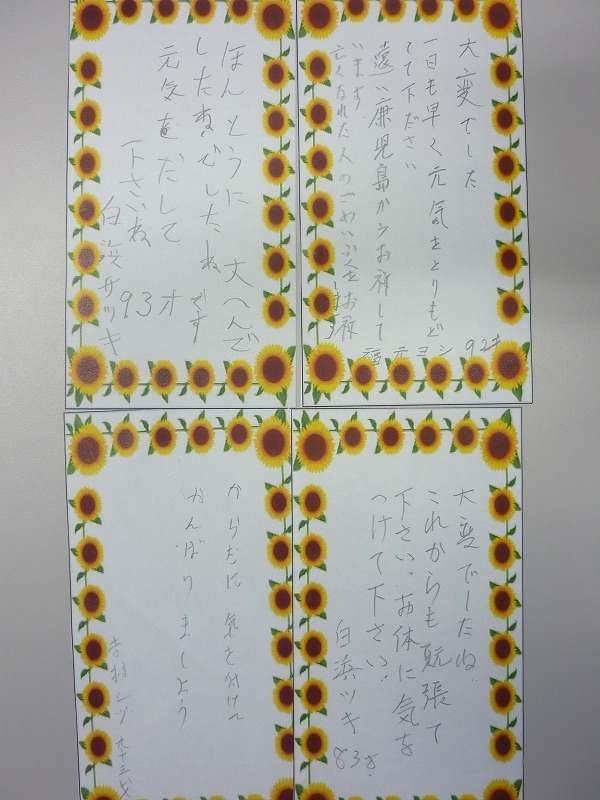 大変でした
一日も早く元気をとりもど
して下ださい
遠い鹿児島からお祈して
います
亡くなれた人のごめいふくをお祈
福元ヨシ 92才
ほんとうに 大へんで
したね でしたね です
元気をだして
下さいね
白浜サツキ 93才
大変でしたね
これからも頑張て
下さい。お体に気を
つけて下さい。
白浜ツキ 83才
からだに 気を付けて
がんばりましよう
吉村シヅ 九十三才